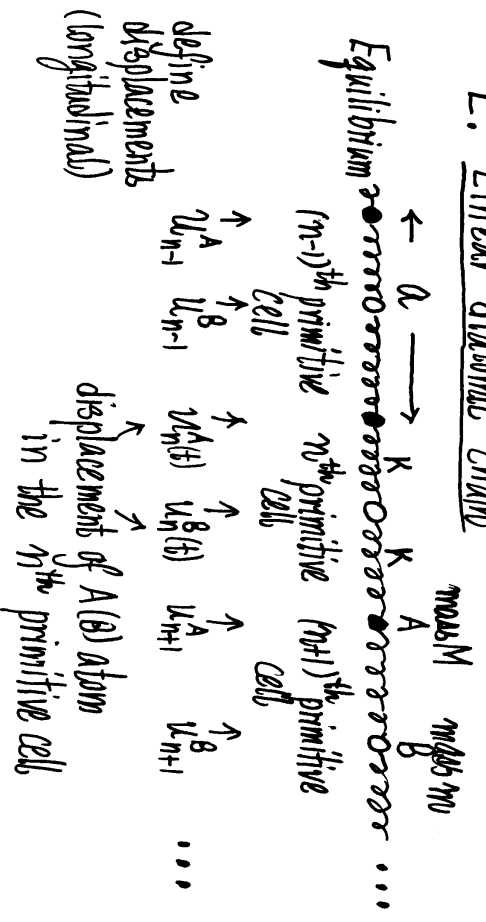 2. Linear diatomic chain
← a →
K K mass M mass m
A B
Equilibrium ...
(n-1)th primitive cell nth primitive cell (n+1)th primitive cell
define displacements (longitudinal)
u_{n-1}^A u_{n-1}^B u_n^A(t) u_n^B(t) u_{n+1}^A u_{n+1}^B ...
displacements of A(B) atom
in the nth primitive cell